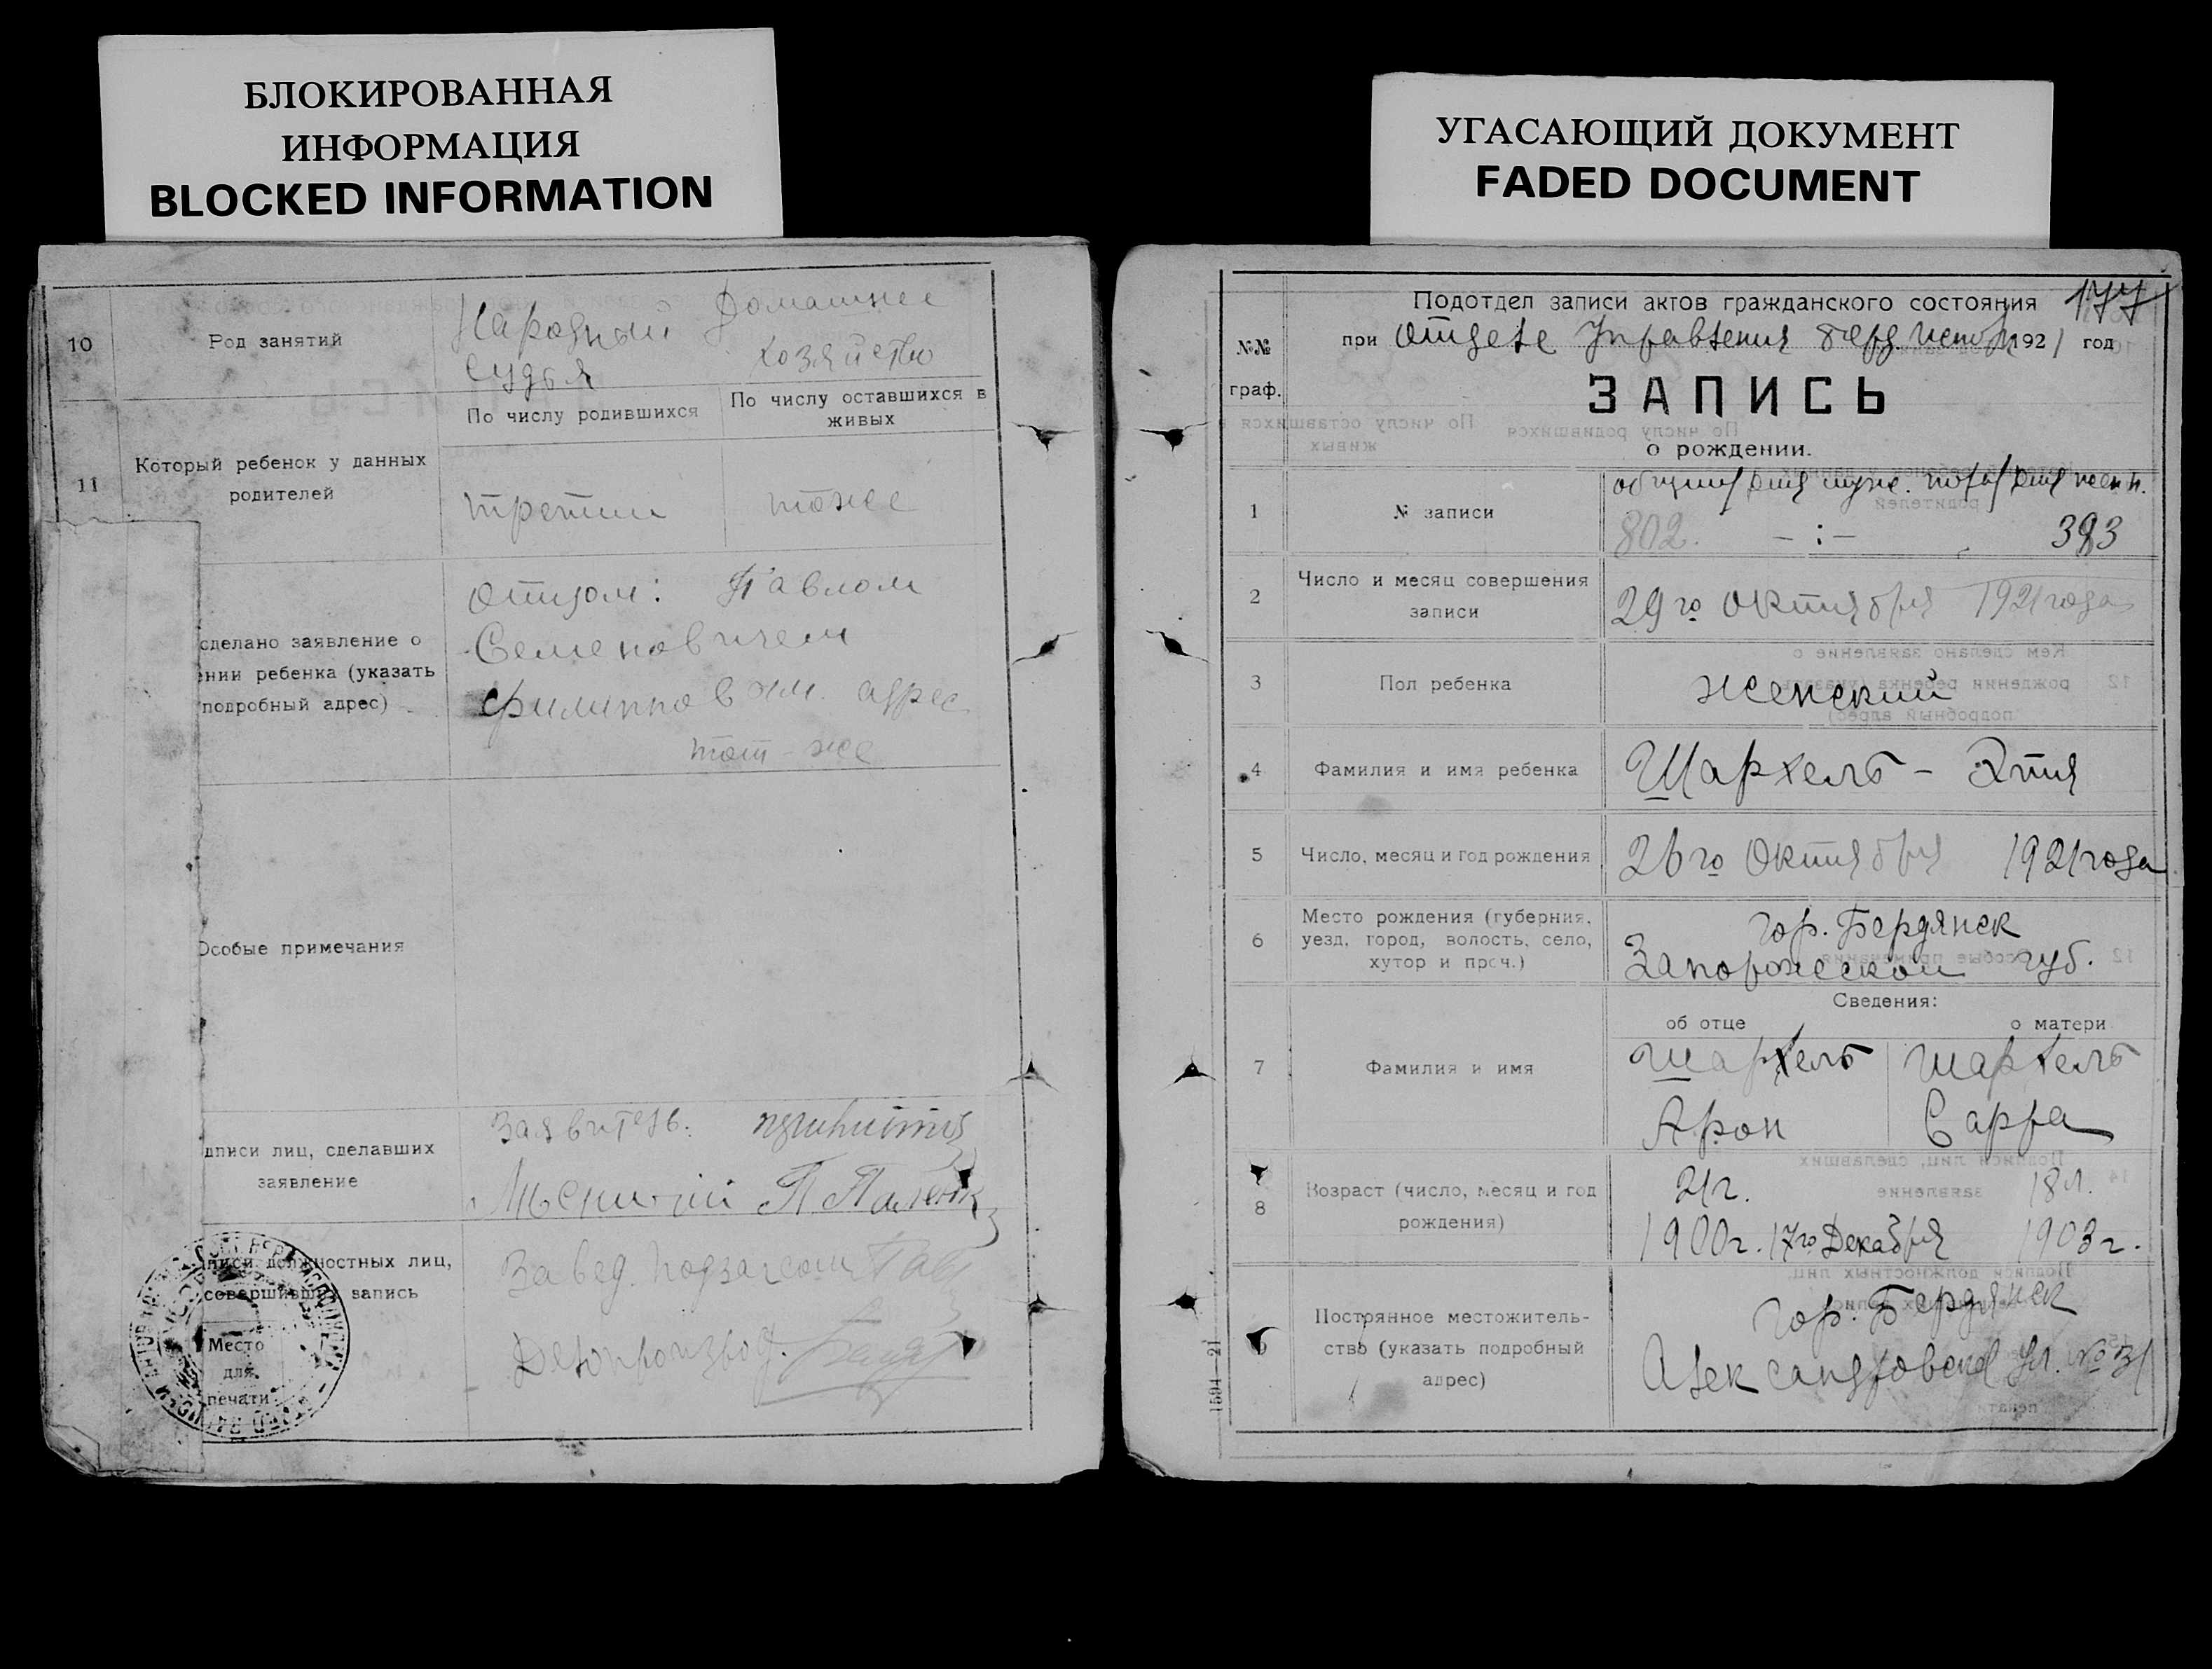 БЛОКИРОВАННАЯ
ИНФОРМАЦИЯ
BLOCKED INFORMATION
10
Род занятий
Народный
судья
Домашнее
хозяйство
11
Который ребенок у данных
родителей
По числу родившихся
По числу оставшихся в
живых
третий
тоже
сделано заявление о
нии ребенка (указать
подробный адрес)
Отцом: Павлом
Семеновичем
Филипповым. адрес
тот-же
Особые примечания
дписи лиц, сделавших
заявление
Заявитель:
писи должностных лиц,
совершивших запись
Завед. подзагсом
Делопроизвод.
Место
для
печати
УГАСАЮЩИЙ ДОКУМЕНТ
FADED DOCUMENT
177
Подотдел записи актов гражданского состояния
при Отделе Управления Берд. 1921 год
№№
граф.
ЗАПИСЬ
о рождении.
1
№ записи
общий для муж. пола для женск.
802. -:- 393
2
Число и месяц совершения
записи
29го Октября 1921 года
3
Пол ребенка
женский
4
Фамилия и имя ребенка
Шархель - Этя
5
Число, месяц и год рождения
26го Октября 1921 года
6
Место рождения (губерния,
уезд, город, волость, село,
хутор и проч.)
гор. Бердянск
Запорожской губ.
Сведения:
об отце
о матери
7
Фамилия и имя
Шархель
Арон
Шархель
Сарра
8
Возраст (число, месяц и год
рождения)
21г.
1900г. 17го Декабря
18л.
1903г.
9
Постоянное местожитель-
ство (указать подробный
адрес)
гор. Бердянск
Александровская ул. № 31
1594—21